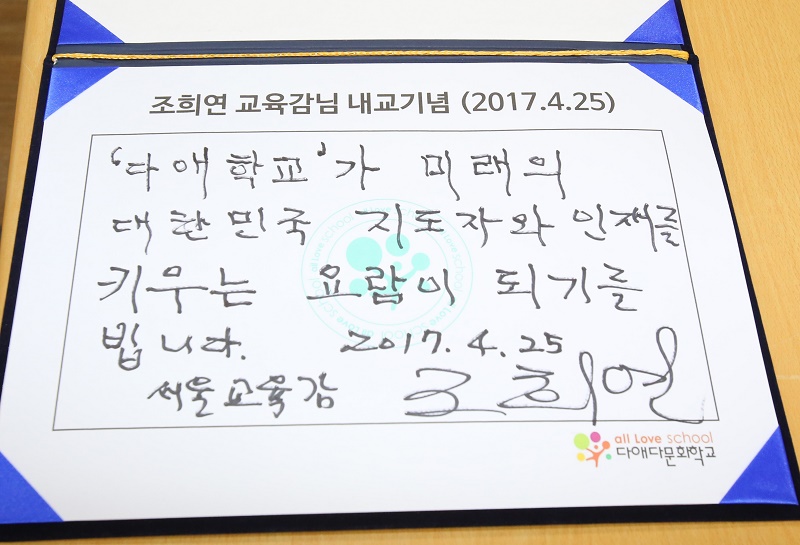 조희연 교육감님 내교기념 (2017.4.25)
'다애학교'가 미래의
대한민국 지도자와 인재를
키우는 요람이 되기를
빕니다. 2017.4.25
서울교육감 조희연
all Love school
다애다문화학교